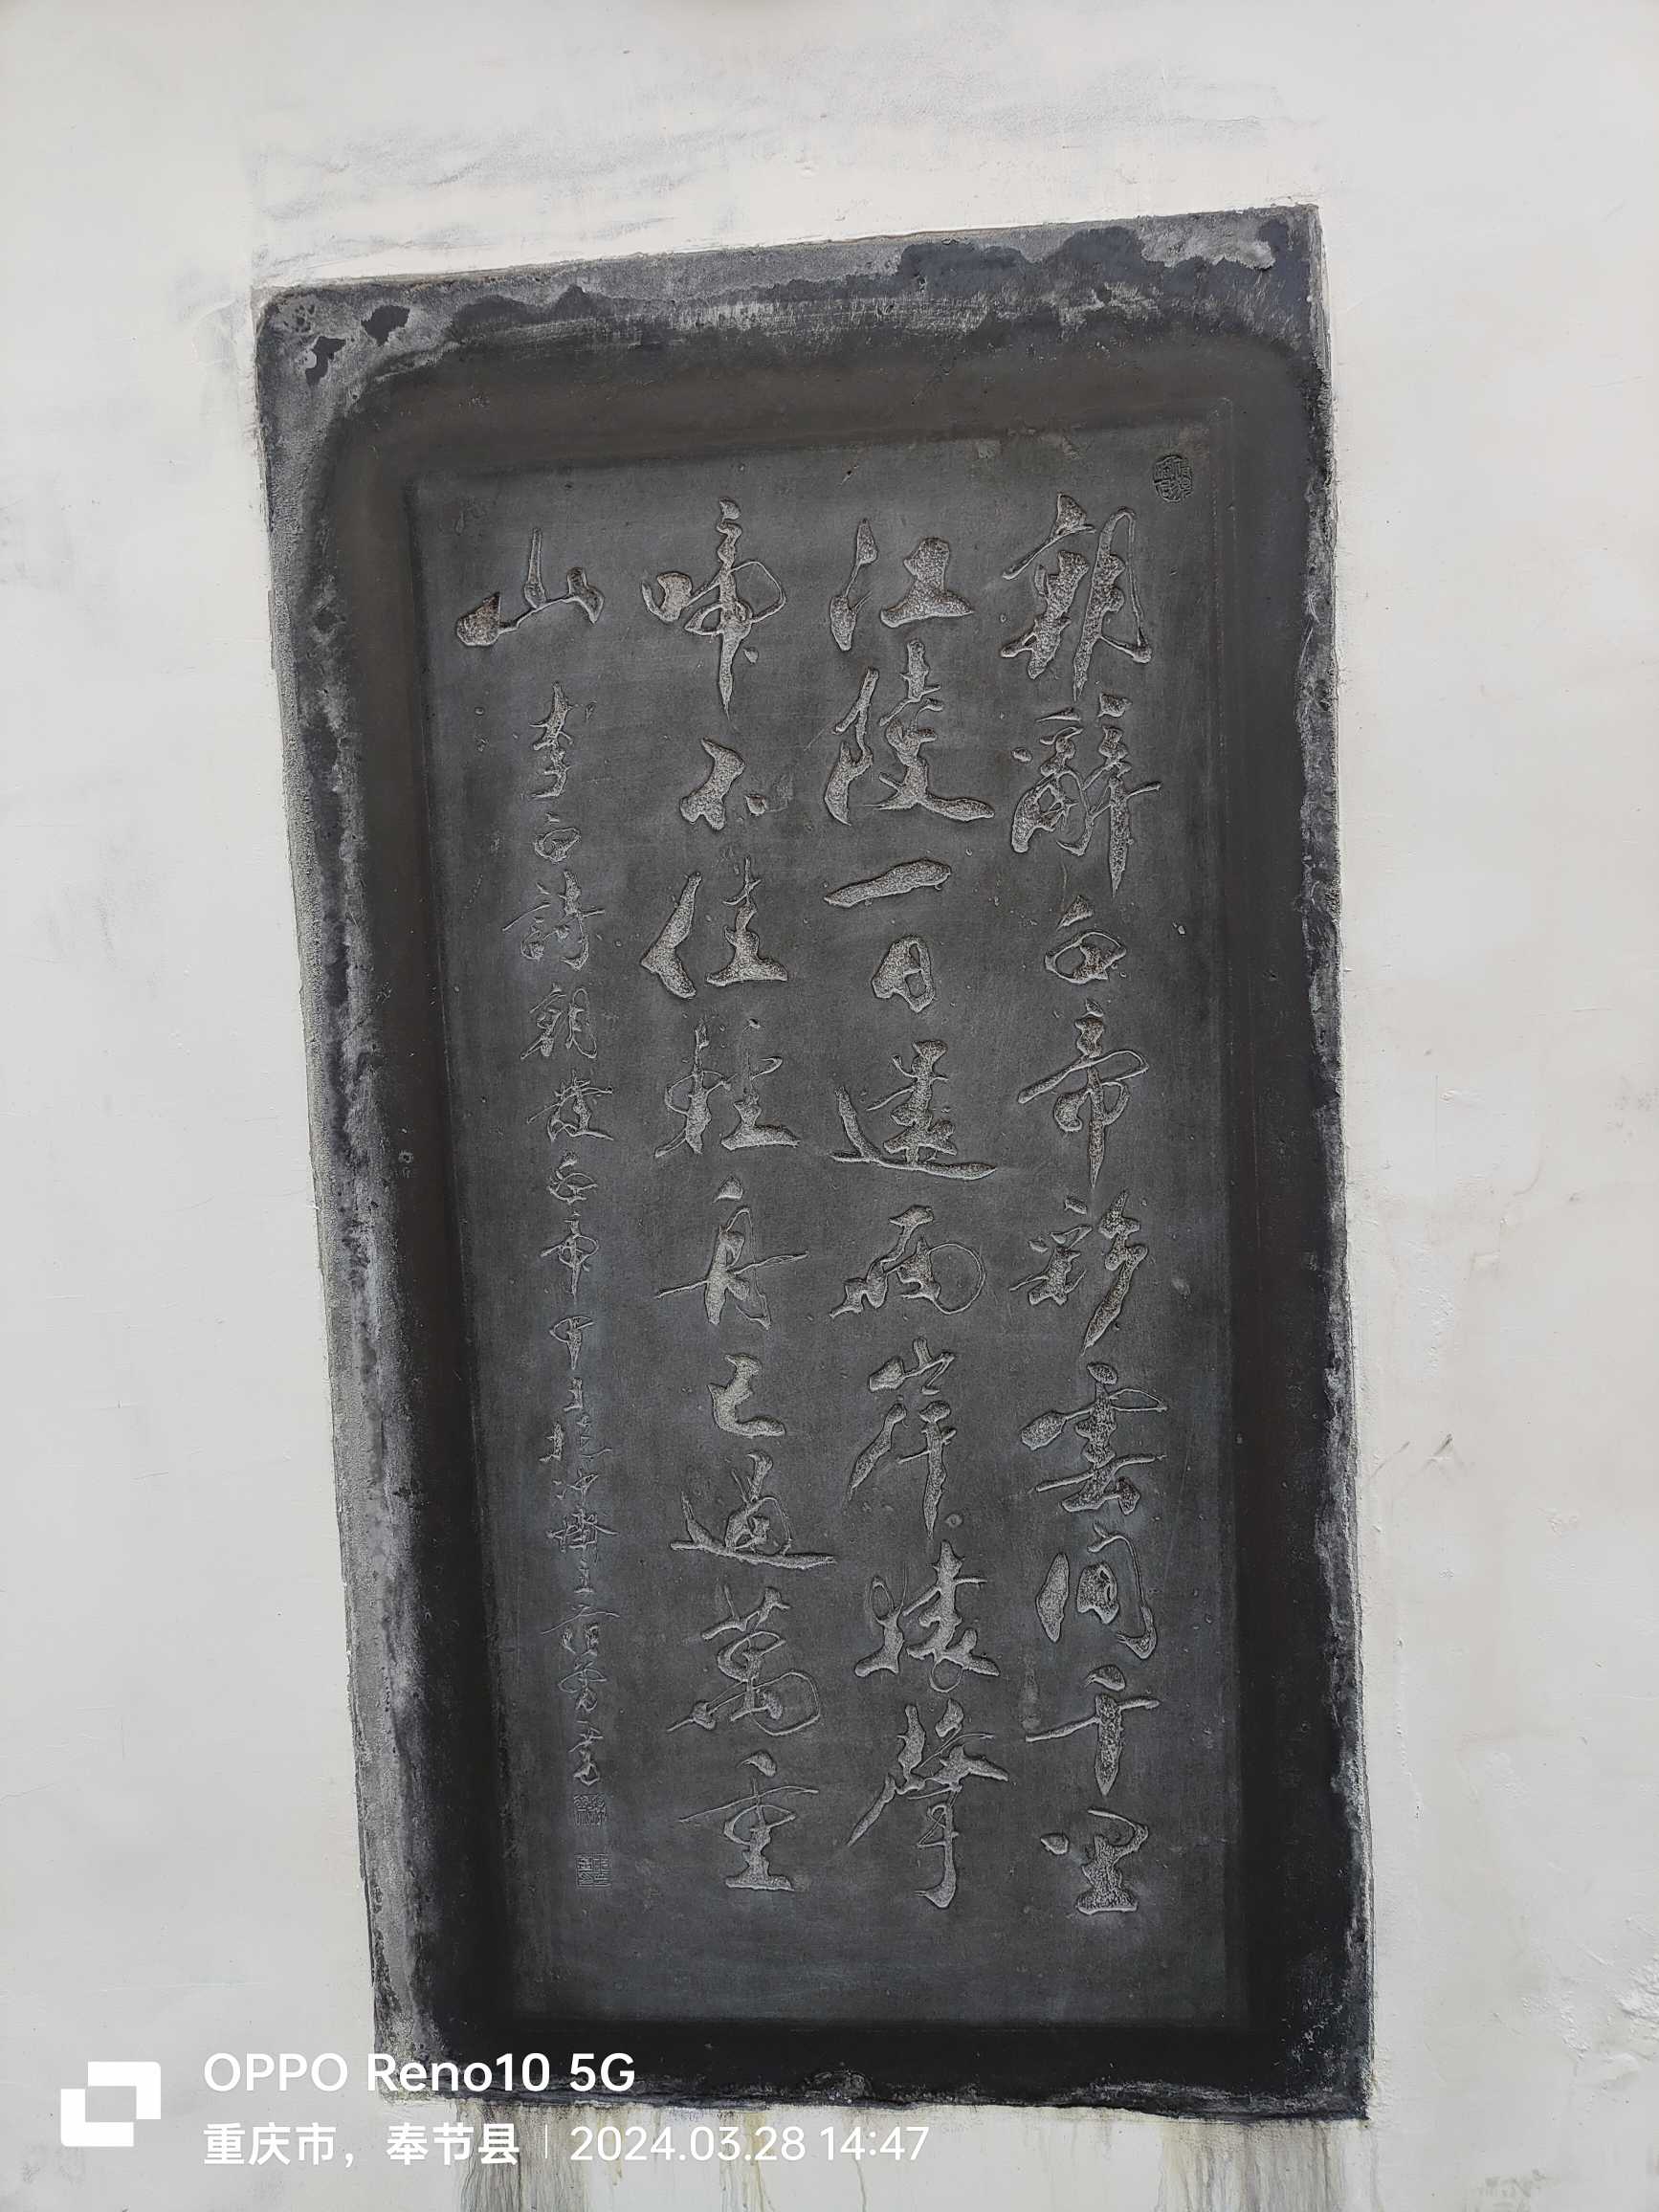 朝辭白帝彩雲间千里
江陵一日還兩岸猿聲
啼不住輕舟已過萬重
山
李白詩朝發白帝
OPPO Reno10 5G
重庆市，奉节县 | 2024.03.28 14:47